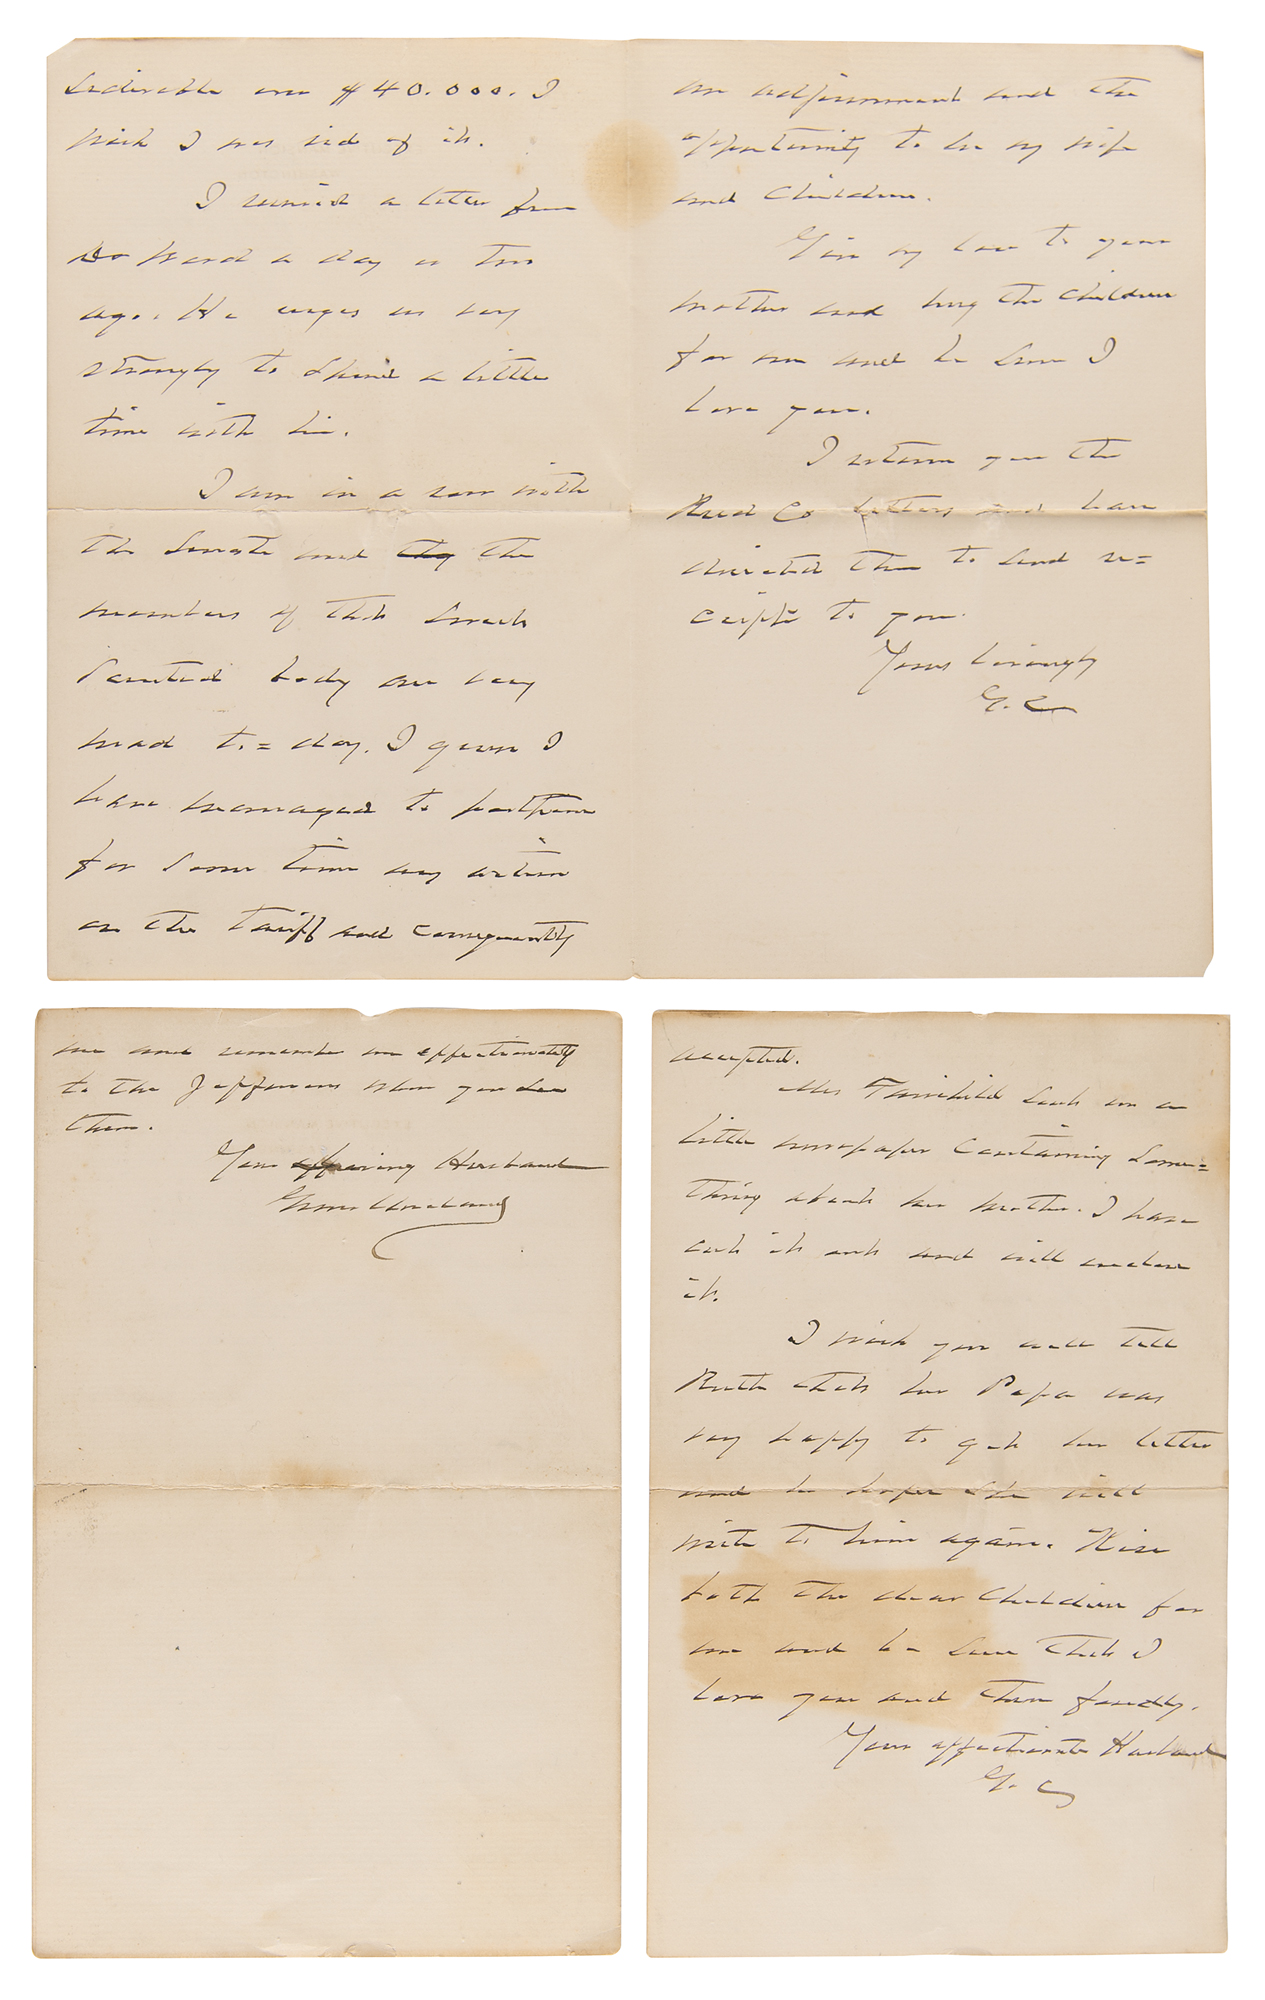 siderable over $40.000. I
wish I was rid of it.
I received a letter from
Ward a day or two
ago. He urges us very
strongly to spend a little
time with him.
I am in a row with
the Senate and the
members of that
body are very
mad to=day. I guess I
have managed to postpone
for some time any action
on the tariff and consequently
an adjournment and the
opportunity to be my wife
and children.
Give my love to your
mother and hug the children
for me and be sure I
love you.
I return you the
Reed Co letters and have
directed them to send re=
ceipts to you.
Yours lovingly
G. C
me and remember me affectionately
to the Jeffersons when you see
them.
Your loving Husband
Grover Cleveland
accepted.
Mrs Fairchild sent me a
little newspaper containing some=
thing about her mother. I have
cut it out and will enclose
it.
I wish you will tell
Ruth that her Papa was
very happy to get her letter
and he hopes she will
write to him again. Kiss
both the dear children for
me and be sure that I
love you and them fondly.
Your affectionate Husband
G. C